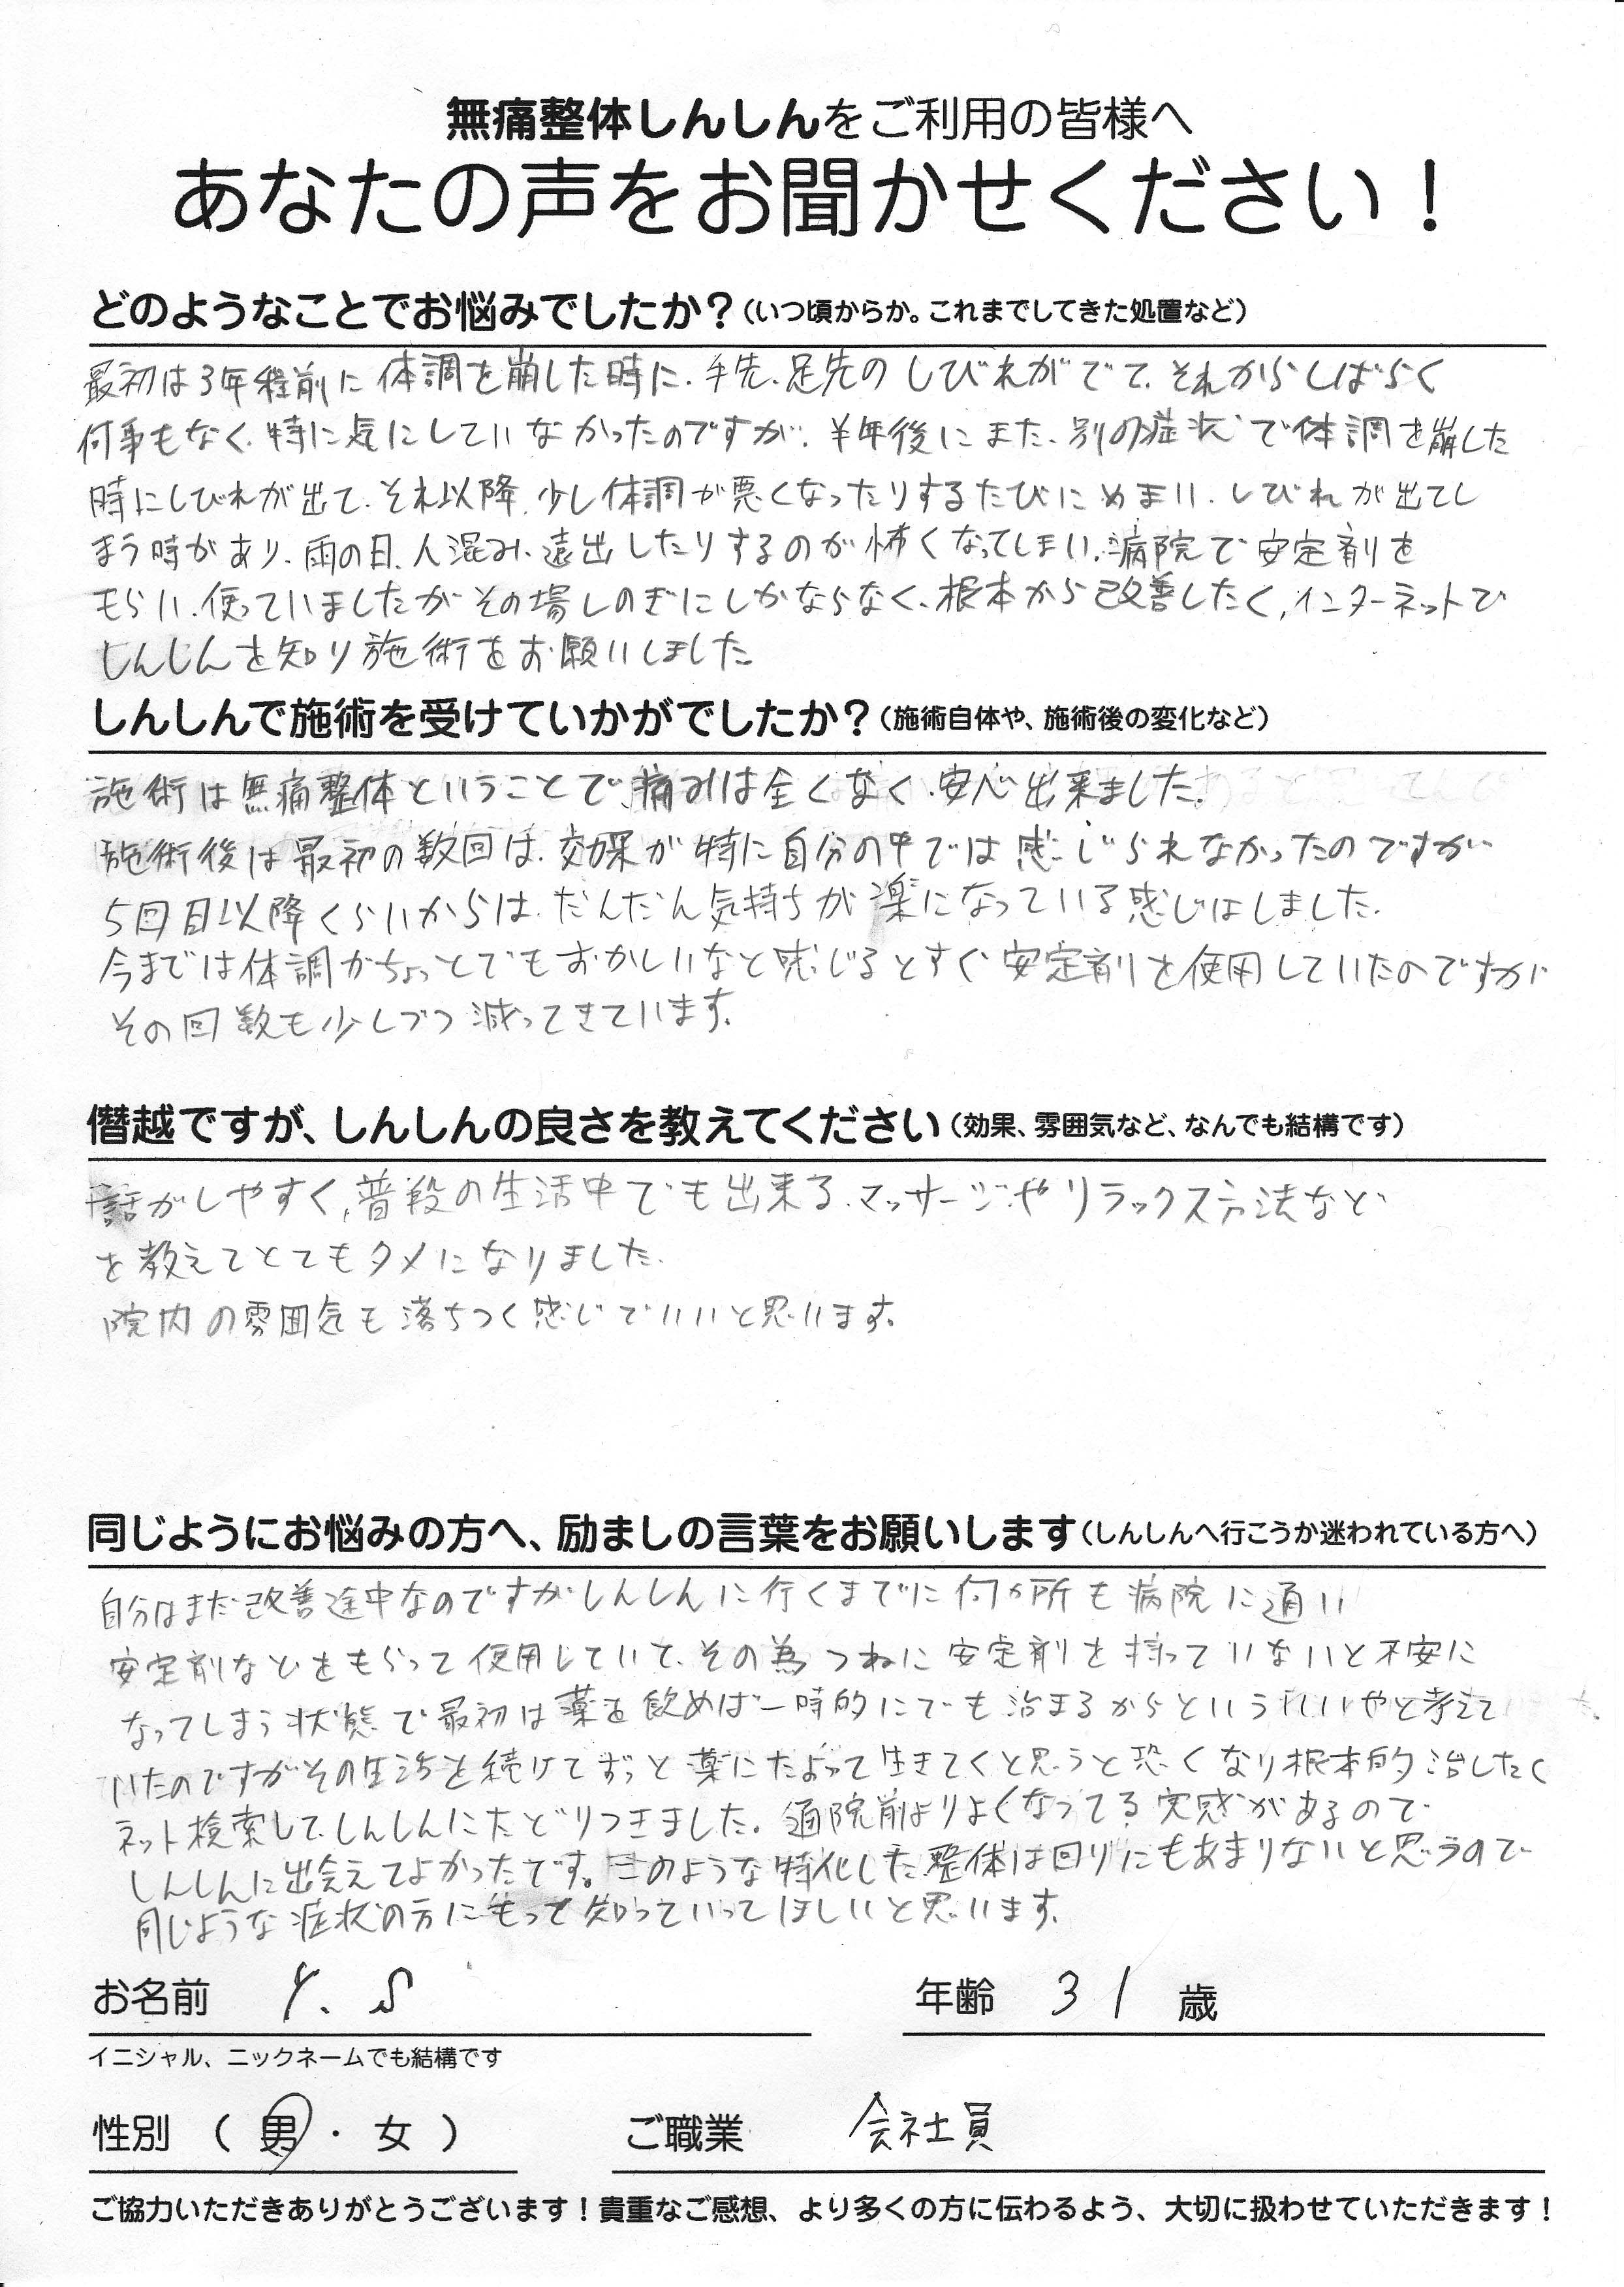 無痛整体しんしんをご利用の皆様へ
あなたの声をお聞かせください！
どのようなことでお悩みでしたか？（いつ頃からか。これまでしてきた処置など）
最初は3年程前に体調を崩した時に、手先、足先のしびれがでて、それからしばらく
何事もなく、特に気にしていなかったのですが、半年後にまた、別の症状で体調を崩した
時にしびれが出て、それ以降、少し体調が悪くなったりするたびにめまい、しびれが出てし
まう時があり、雨の日、人混み、遠出したりするのが怖くなってしまい、病院で安定剤を
もらい、使っていましたがその場しのぎにしかならなく、根本から改善したく、インターネットで
しんしんを知り施術をお願いしました
しんしんで施術を受けていかがでしたか？（施術自体や、施術後の変化など）
施術は無痛整体ということで痛みは全くなく、安心出来ました。
施術後は最初の数回は、効果が特に自分の中では感じられなかったのですが
5回目以降くらいからは、だんだん気持ちが楽になっている感じはしました。
今までは体調がちょっとでもおかしいなと感じるとすぐ安定剤を使用していたのですが
その回数も少しづつ減ってきています。
僭越ですが、しんしんの良さを教えてください（効果、雰囲気など、なんでも結構です）
話がしやすく、普段の生活中でも出来る、マッサージやリラックス方法など
を教えてとてもタメになりました。
院内の雰囲気も落ちつく感じでいいと思います。
同じようにお悩みの方へ、励ましの言葉をお願いします（しんしんへ行こうか迷われている方へ）
自分はまだ改善途中なのですがしんしんに行くまでに何か所も病院に通い
安定剤などをもらって使用していて、その為つねに安定剤を持っていないと不安に
なってしまう状態で最初は薬を飲めば一時的にでも治まるからというしいいやと考えて
いたのですがその生活を続けてずっと薬にたよって生きてくと思うと恐くなり根本的治したく
ネット検索して、しんしんにたどりつきました。通院前よりよくなってる実感があるので
しんしんに出会えてよかったです。このような特化した整体は回りにもあまりないと思うので
同じような症状の方にもっと知っていってほしいと思います。
お名前 Y. S 年齢 31 歳
イニシャル、ニックネームでも結構です
性別 （ 男 ・ 女 ） ご職業 会社員
ご協力いただきありがとうございます！貴重なご感想、より多くの方に伝わるよう、大切に扱わせていただきます！